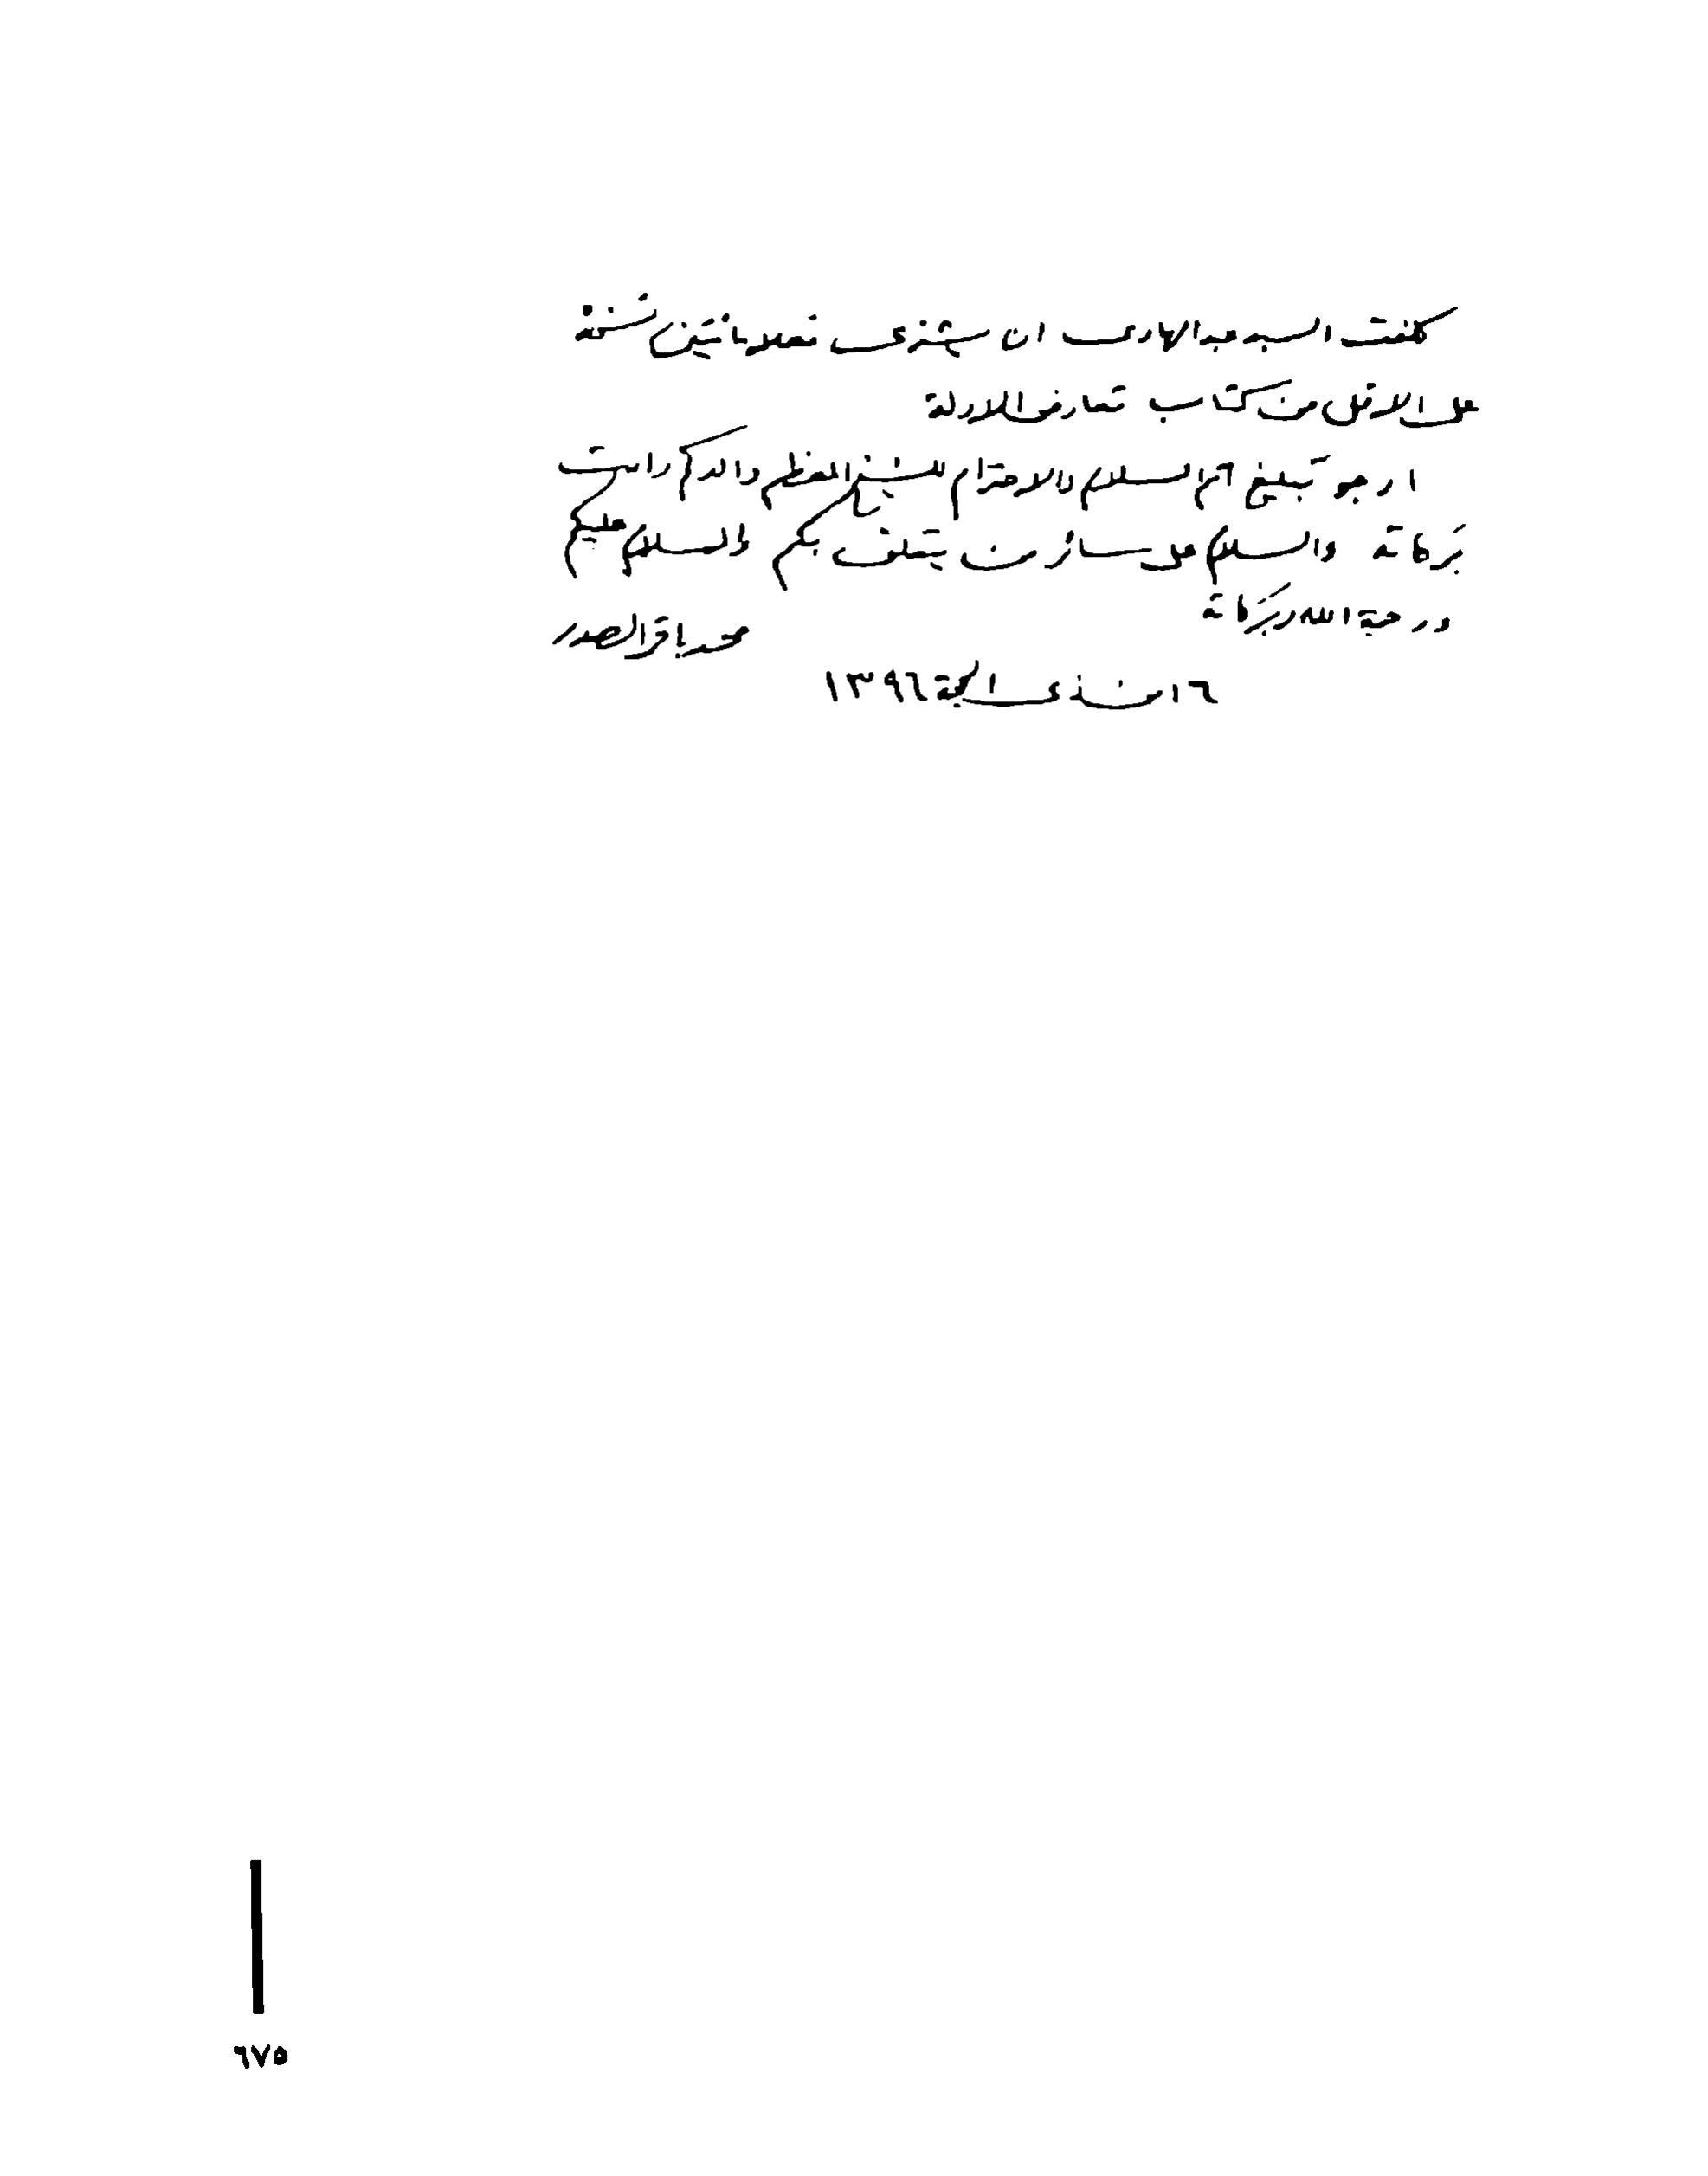 كلفت السيد عبد الهادي ان يشتري فعلا مائتين نسخة
على الاقل من كتاب تعارض الادلة
ارجو تبليغ اتم السلام والاحترام للشيخ المعظم والدكم دامت
بركاته والسلام على سائر من يتعلق بكم والسلام عليكم
ورحمة الله وبركاته
محمد باقر الصدر
١٦ من ذي الحجة ١٣٩٦
٦٧٥